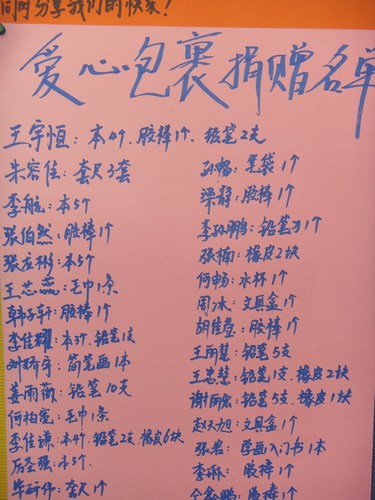 同时分享我们的快乐!
爱心包裹捐赠名单
王宇恒:本4个、胶棒1个、铅笔2支
朱容佳:套尺3套
李航:本5个
张伯然:胶棒1个
张龙彬:本5个
王芯蕊:毛巾1条
韩子轩:胶棒1个
李佳耀:本3个、铅笔1支
刘矫宇:简笔画1本
姜雨薇:铅笔10支
何柏宽:毛巾1条
李佳谦:本4个、铅笔2支、橡皮6块
:本5个
毕研伟:套尺1个
孙畅:笔袋1个
梁静:胶棒1个
李孙鹏:铅笔刀1个
张楠:橡皮2块
何畅:水杯1个
周冰:文具盒1个
胡佳莹:胶棒1个
王雨慧:铅笔5支
王芯慧:铅笔1支、橡皮2块
谢雨宏:铅笔5支、橡皮1块
赵天旭:文具盒1个
张岩:学画入门书1本
李琳:胶棒1个
鹏:胶棒1个